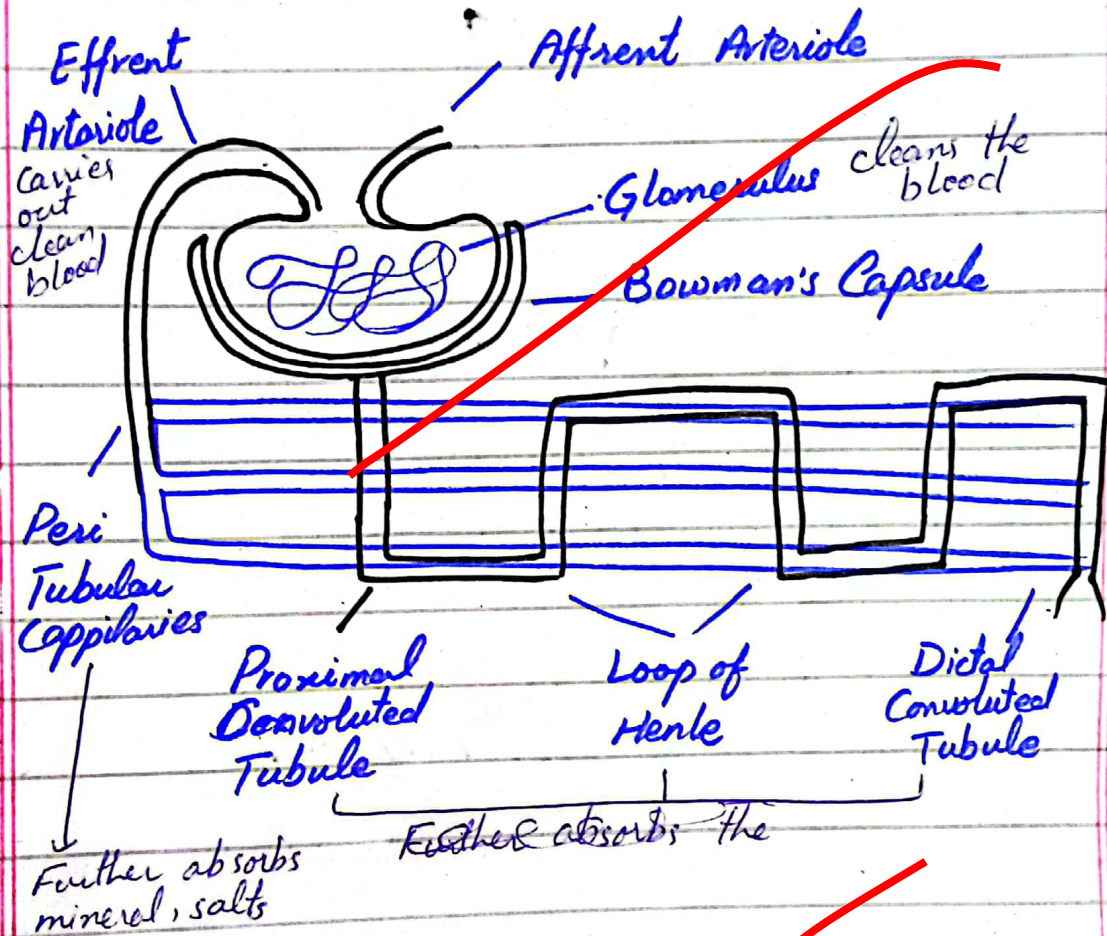 Effrent
Artoriole
carries
out
clean
blood
Affrent Arteriole
Glomerulus
cleans the
blood
Bowman's Capsule
Peri
Tubular
Coppilaries
Proximal
Convoluted
Tubule
Loop of
Henle
Dictal
Convoluted
Tubule
Further absorbs the
Further absorbs
mineral, salts